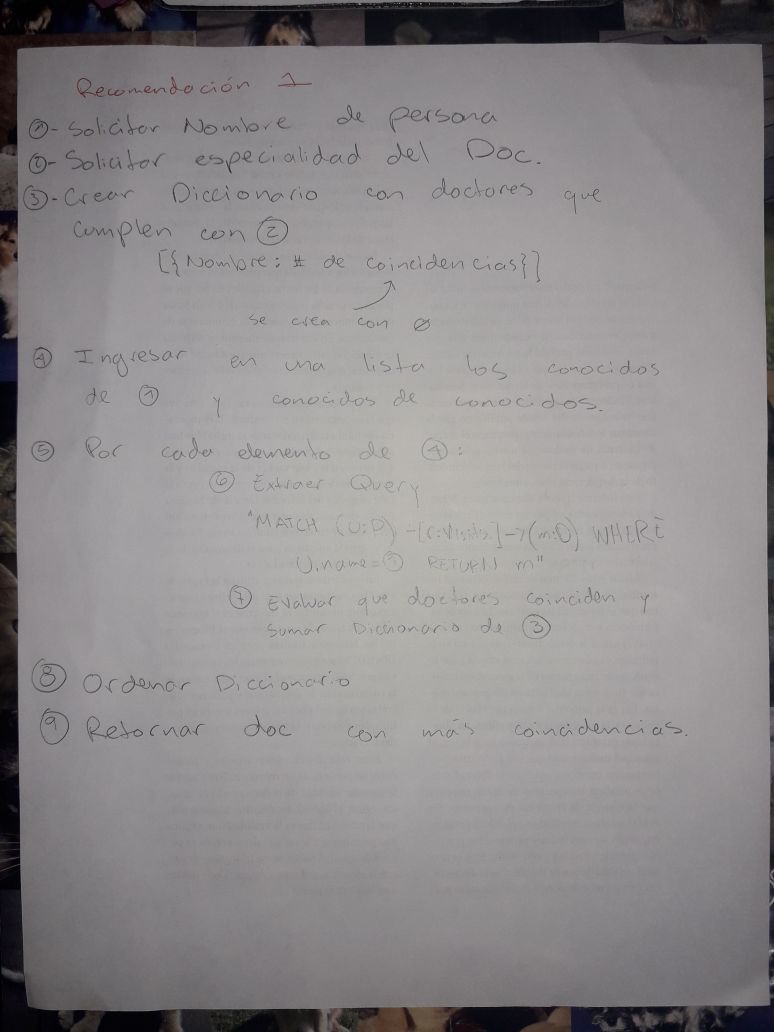 Recomendación 1
①- Solicitar Nombre de persona
②- Solicitar especialidad del Doc.
③- Crear Diccionario con doctores que
cumplen con ②
[{Nombre: # de coincidencias}]
se crea con ∅
④ Ingresar en una lista los conocidos
de ① y conocidos de conocidos.
⑤ Por cada elemento de ④:
⑥ Extraer Query
"MATCH (U:P) -[r:Visits]->(m:D) WHERE
U.name=⑤ RETURN m"
⑦ Evaluar que doctores coinciden y
sumar Diccionario de ③
⑧ Ordenar Diccionario
⑨ Retornar doc con más coincidencias.